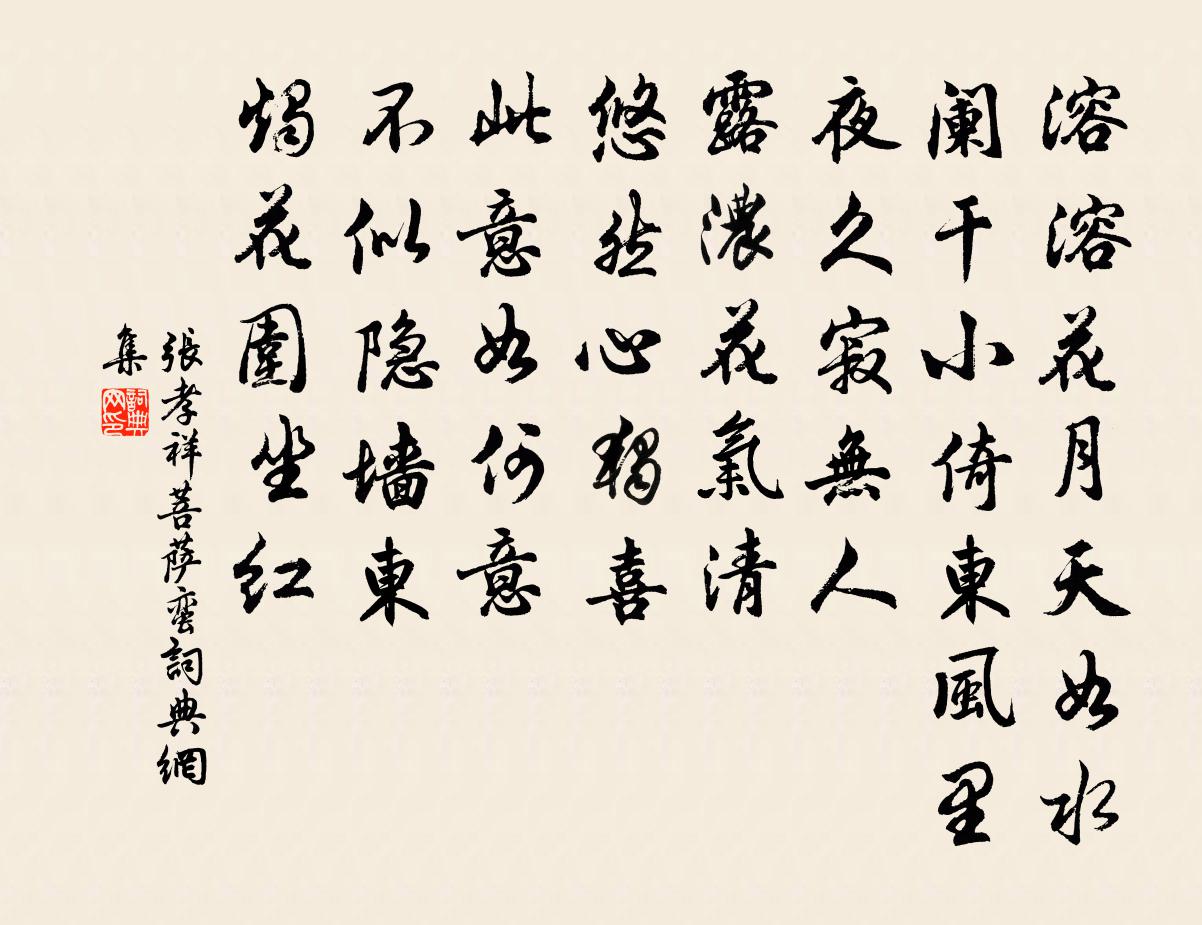 溶溶花月天如水
阑干小倚東風里
夜久寂無人
露濃花氣清
悠然心獨喜
此意如何意
不似隐墙東
燭花圍坐红
張孝祥菩萨蛮詞典網
集
詞典网印